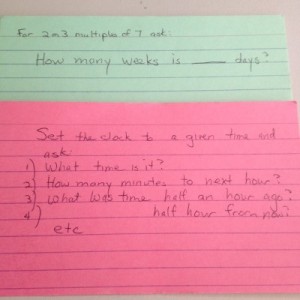 For 2 or 3 multiples of 7 ask:
How many weeks is ____ days?
Set the clock to a given time and
ask:
1) What time is it?
2) How many minutes to next hour?
3) What was time half an hour ago?
4) half hour from now?
etc